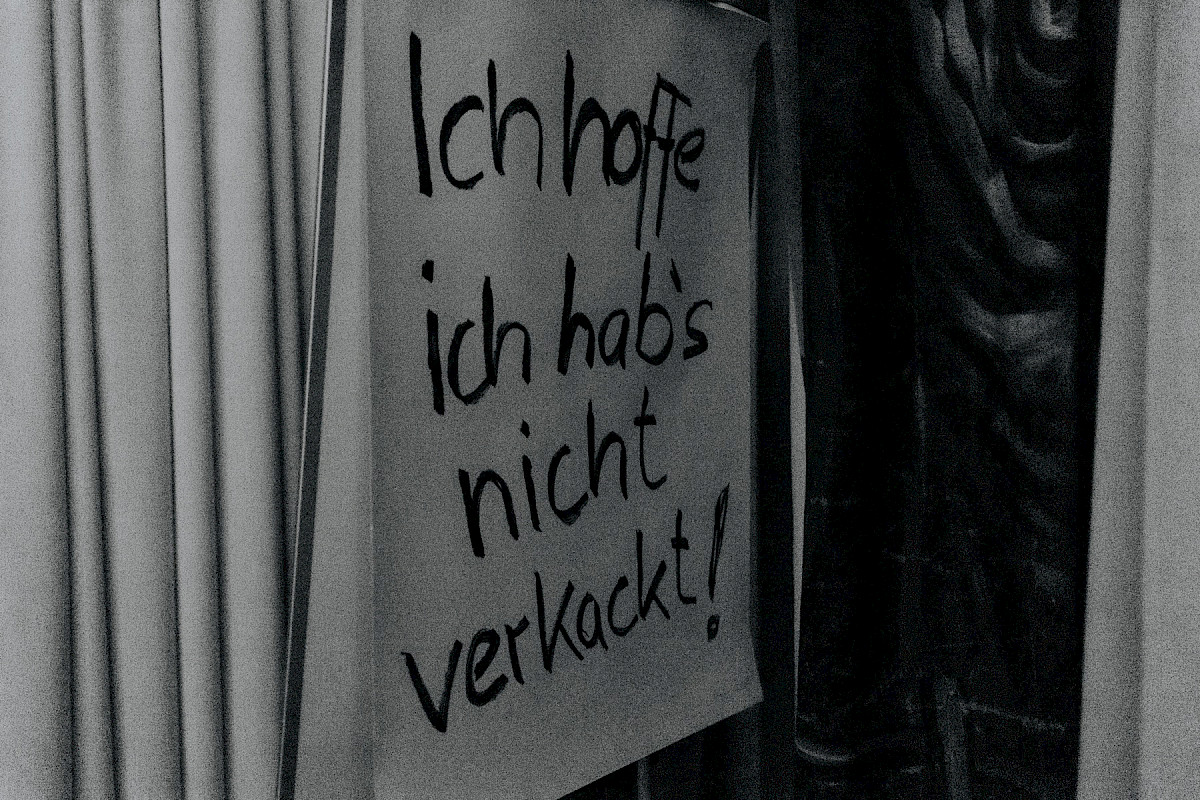 Ich hoffe
ich hab's
nicht
verkackt!